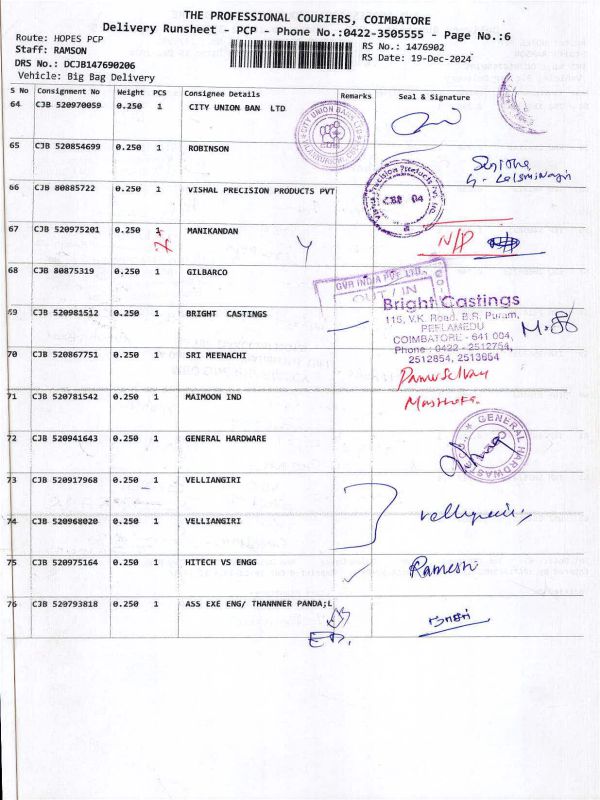 THE PROFESSIONAL COURIERS, COIMBATORE
Delivery Runsheet - PCP - Phone No.:0422-3505555 - Page No.:6
Route: HOPES PCP
RS No.: 1476902
Staff: RAMSON
RS Date: 19-Dec-2024
DRS No.: DCJB147690206
Vehicle: Big Bag Delivery
S No Consignment No Weight PCS Consignee Details Remarks Seal & Signature
64 CJB 520970059 0.250 1 CITY UNION BAN LTD
65 CJB 520854699 0.250 1 ROBINSON
66 CJB 80885722 0.250 1 VISHAL PRECISION PRODUCTS PVT
67 CJB 520975201 0.250 1 MANIKANDAN N/P
68 CJB 80875319 0.250 1 GILBARCO
GVR INDIA PVT. LTD.
OUT / IN
69 CJB 520981512 0.250 1 BRIGHT CASTINGS
Bright Castings
115, V.K. Road, B.R. Puram,
PEELAMEDU
COIMBATORE - 641 004,
Phone : 0422 - 2512754,
2512854, 2513654
70 CJB 520867751 0.250 1 SRI MEENACHI
71 CJB 520781542 0.250 1 MAIMOON IND
72 CJB 520941643 0.250 1 GENERAL HARDWARE
73 CJB 520917968 0.250 1 VELLIANGIRI
74 CJB 520968020 0.250 1 VELLIANGIRI
75 CJB 520975164 0.250 1 HITECH VS ENGG Ramesh
76 CJB 520793818 0.250 1 ASS EXE ENG/ THANNNER PANDA;L